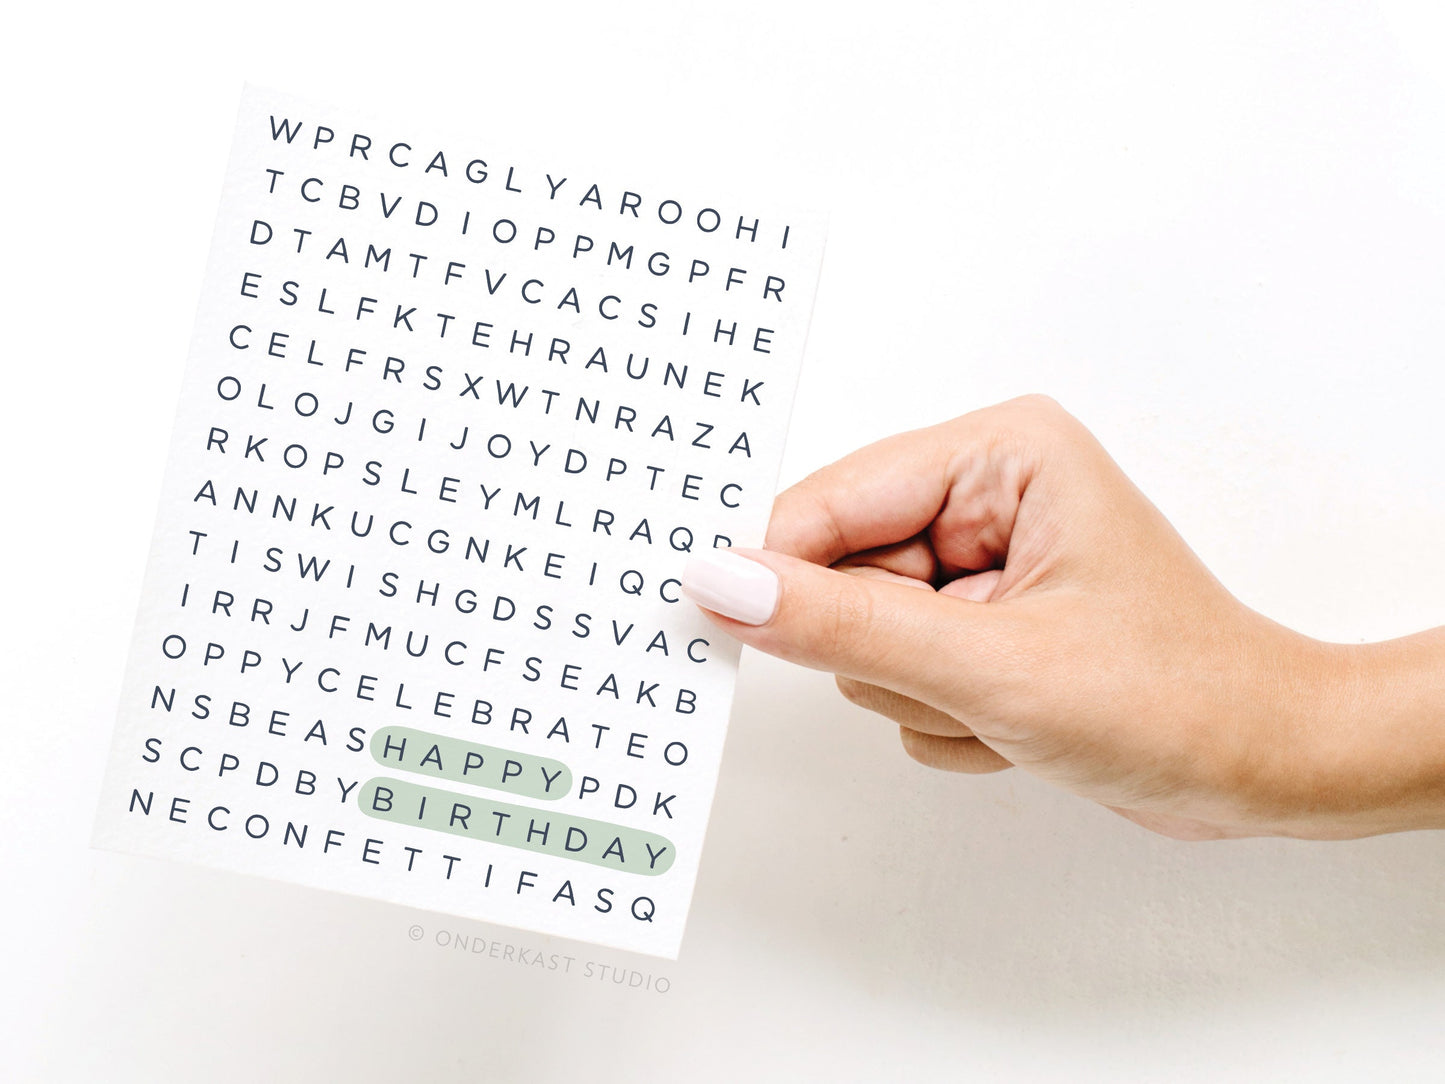 W P R C A G L Y A R O O H I
T C B V D I O P P M G P F R
D T A M T F V C A C S I H E
E S L F K T E H R A U N E K
C E L F R S X W T N R A Z A
O L O J G I J O Y D P T E C
R K O P S L E Y M L R A Q
A N N K U C G N K E I Q C
T I S W I S H G D S S V A C
I R R J F M U C F S E A K B
O P P Y C E L E B R A T E O
N S B E A S H A P P Y P D K
S C P D B Y B I R T H D A Y
N E C O N F E T T I F A S Q
© ONDERKAST STUDIO